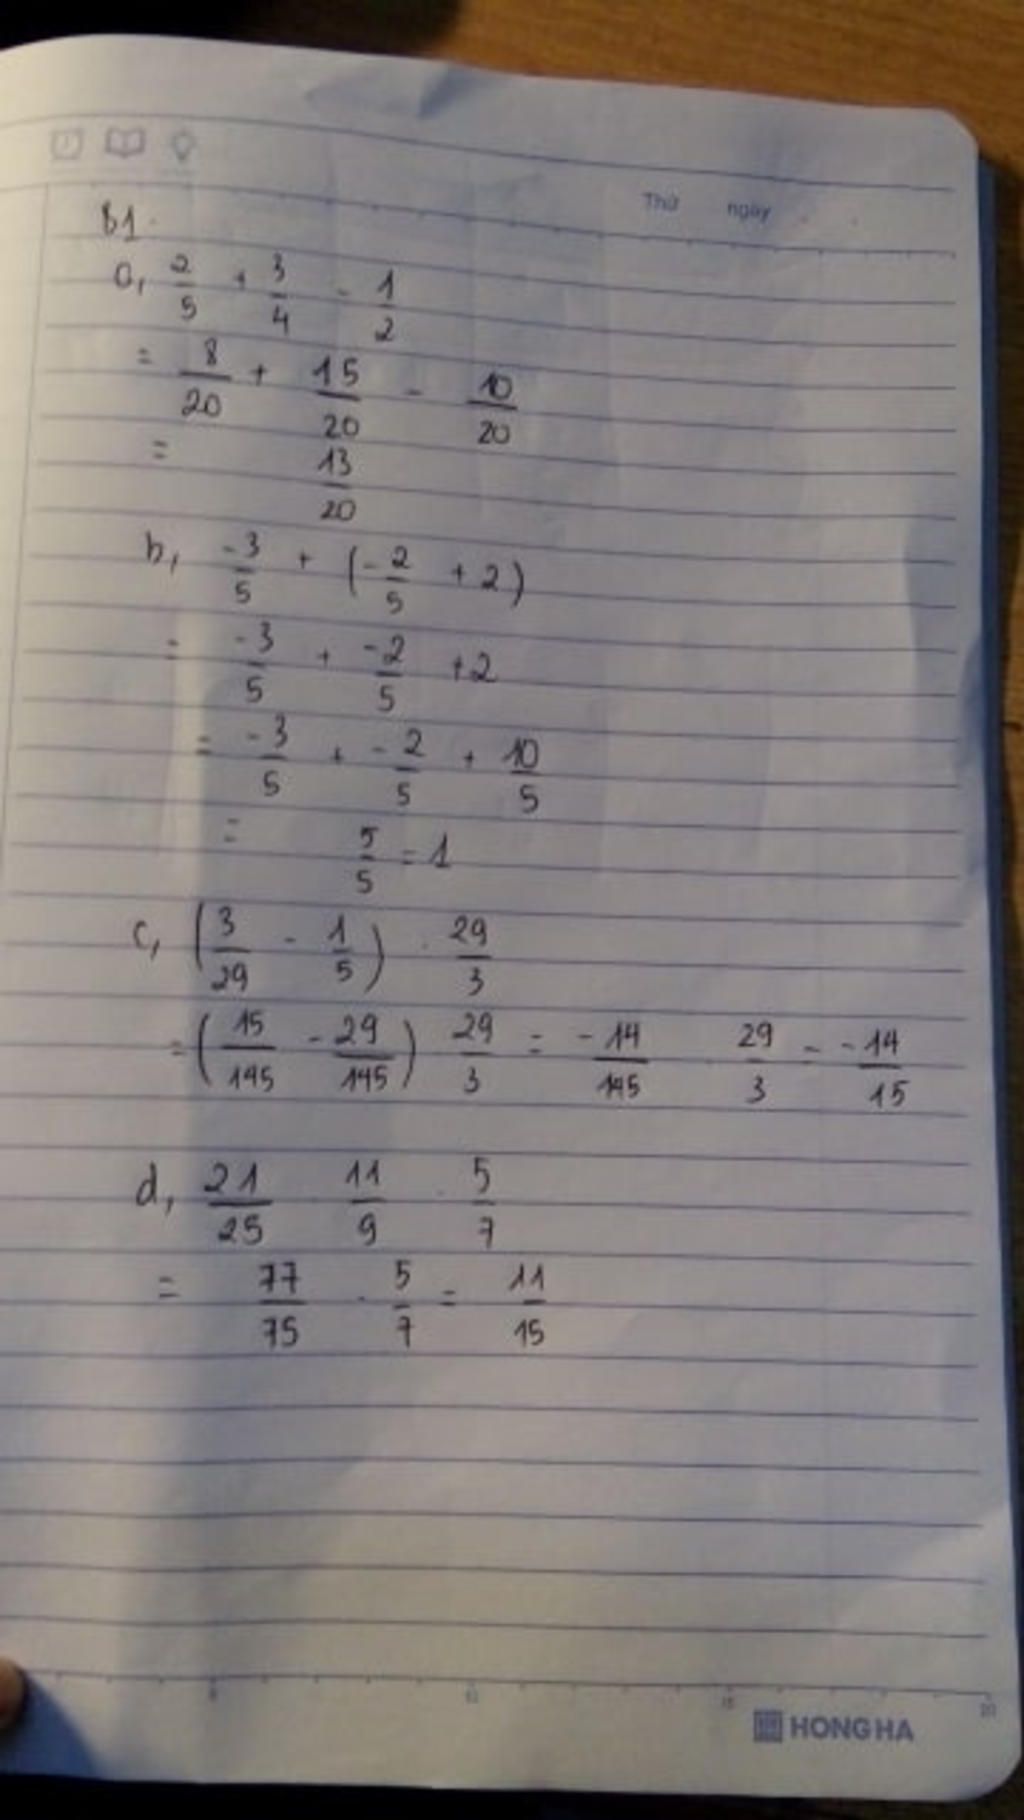 Thứ ngày
B1.
a, 2/5 + 3/4 - 1/2
= 8/20 + 15/20 - 10/20
= 13/20
b, -3/5 + (-2/5 + 2)
= -3/5 + -2/5 + 2
= -3/5 + -2/5 + 10/5
= 5/5 = 1
c, (3/29 - 1/5) . 29/3
= (15/145 - 29/145) 29/3 = -14/145 . 29/3 = -14/15
d, 21/25 . 11/9 . 5/7
= 77/75 . 5/7 = 11/15
5 10 15 20
HONG HA